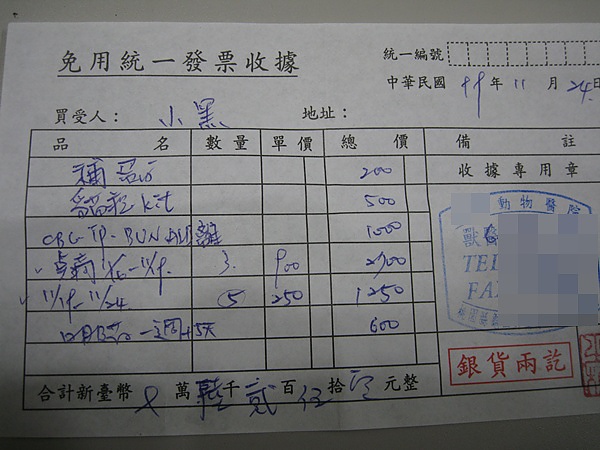 免用統一發票收據
統一編號
中華民國 99 年 11 月 24 日
買受人: 小黑 地址:
品名 數量 單價 總價 備註
200 收據專用章
貓瘟 kit 500
動物醫院
CBC-TP-BUN 1000
獸
11/6-11/9. 3. 900 2700
TEL
11/19-11/24 5 250 1250
FA
一週+5天 600
銀貨兩訖
合計新臺幣 萬 千貳百伍拾零元整